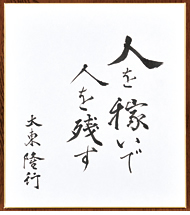 人を稼いで
人を残す
大東隆行